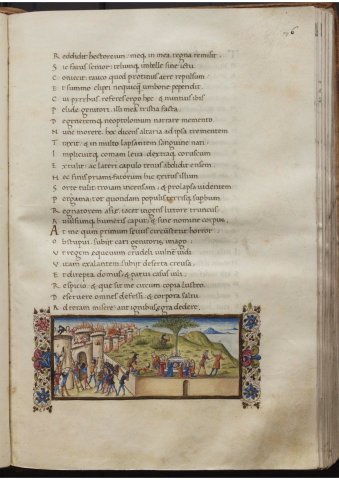 R eddidit hectoreum: meq; in mea regna remisit
S ic fatus senior: telumq; imbelle sine ictu
C oniecit: rauco quod protinus aere repulsum
E t summo clipei nequicq̃ umbone pependit
C ui pyrrhus: referes ergo hęc & nuntius ibis
P elidę genitori. illi mea tristia facta
D egeneremq; neoptolemum narrare memento
N unc morere. hoc dicens altaria ad ipsa trementem
T raxit: & in multo lapsantem sanguine nati
I mplicuitq; comam leua: dextraq; coruscum
E xtulit: ac lateri capulo tenus abdidit ensem
H ęc finis priami fatorum: hic exitus illum
S orte tulit troiam incensam: & prolapsa uidentem
P ergama: tot quondam populis terrisq; superbum
R egnatorem asię: iacet ingens littore truncus
A uulsumq; humeris caput: & sine nomine corpus
A t me tum primum sęuus circumstetit horror
O bstupui: subiit cari genitoris imago
V t regem ęquęuum crudeli uulnere uidi
V itam exalantem: subiit deserta creusa
E t direpta domus: & parui casus iuli
R espicio: & quę sit me circum copia lustro
D eseruere omnes defessi: & corpora saltu
A d terram misere: aut ignibus ęgra dedere.